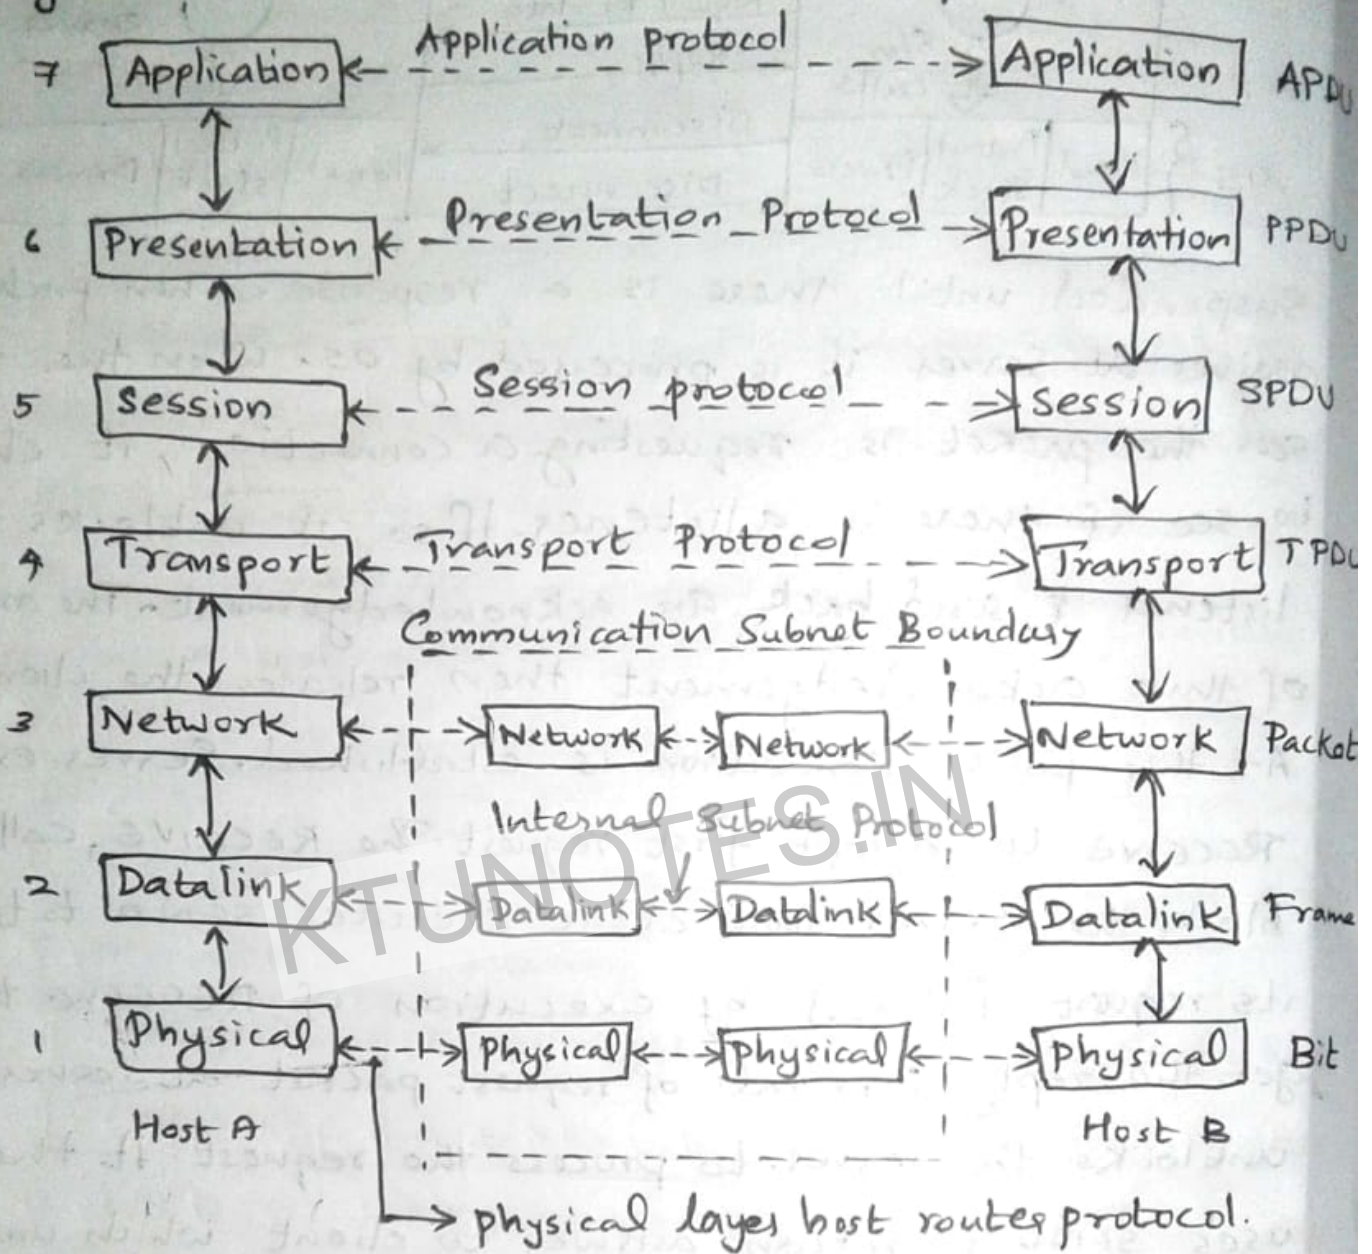 Application protocol
7 Application Application APDU
6 Presentation Presentation Protocol Presentation PPDU
5 Session Session protocol Session SPDU
4 Transport Transport Protocol Transport TPDU
Communication Subnet Boundary
3 Network Network Network Network Packet
Internal Subnet Protocol
2 Datalink Datalink Datalink Datalink Frame
KTUNOTES.IN
1 Physical Physical Physical Physical Bit
Host A Host B
physical layer host router protocol.